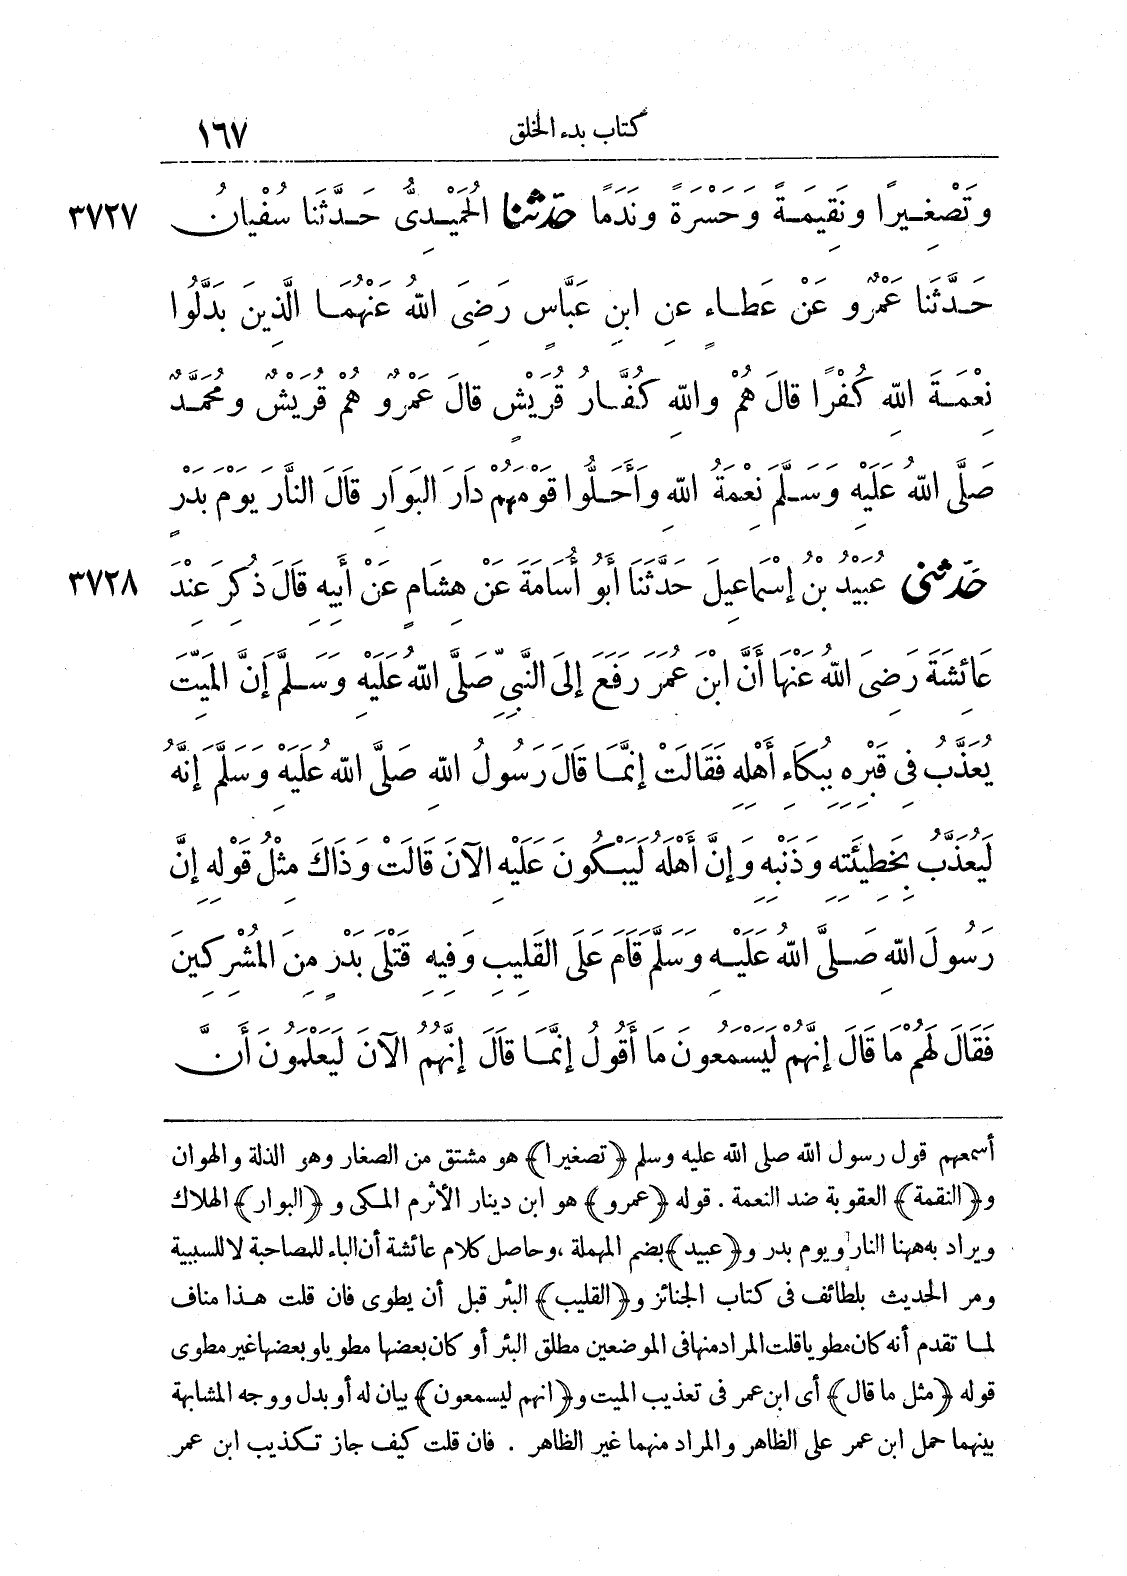 كتاب بدء الخلق ١٦٧
وَتَصْغِيرًا وَنَقِيمَةً وَحَسْرَةً وَنَدَمًا حَدَّثَنَا الْحُمَيْدِىُّ حَدَّثَنَا سُفْيَانُ ٣٧٢٧
حَدَّثَنَا عَمْرٌو عَنْ عَطَاءٍ عَنِ ابْنِ عَبَّاسٍ رَضِىَ اللهُ عَنْهُمَا الَّذِينَ بَدَّلُوا
نِعْمَةَ اللهِ كُفْرًا قَالَ هُمْ وَاللهِ كُفَّارُ قُرَيْشٍ قَالَ عَمْرٌو هُمْ قُرَيْشٌ وَمُحَمَّدٌ
صَلَّى اللهُ عَلَيْهِ وَسَلَّمَ نِعْمَةُ اللهِ وَأَحَلُّوا قَوْمَهُمْ دَارَ الْبَوَارِ قَالَ النَّارَ يَوْمَ بَدْرٍ
حَدَّثَنِى عُبَيْدُ بْنُ إِسْمَاعِيلَ حَدَّثَنَا أَبُو أُسَامَةَ عَنْ هِشَامٍ عَنْ أَبِيهِ قَالَ ذُكِرَ عِنْدَ ٣٧٢٨
عَائِشَةَ رَضِىَ اللهُ عَنْهَا أَنَّ ابْنَ عُمَرَ رَفَعَ إِلَى النَّبِىِّ صَلَّى اللهُ عَلَيْهِ وَسَلَّمَ إِنَّ الْمَيِّتَ
يُعَذَّبُ فِى قَبْرِهِ بِبُكَاءِ أَهْلِهِ فَقَالَتْ إِنَّمَا قَالَ رَسُولُ اللهِ صَلَّى اللهُ عَلَيْهِ وَسَلَّمَ إِنَّهُ
لَيُعَذَّبُ بِخَطِيئَتِهِ وَذَنْبِهِ وَإِنَّ أَهْلَهُ لَيَبْكُونَ عَلَيْهِ الْآنَ قَالَتْ وَذَاكَ مِثْلُ قَوْلِهِ إِنَّ
رَسُولَ اللهِ صَلَّى اللهُ عَلَيْهِ وَسَلَّمَ قَامَ عَلَى الْقَلِيبِ وَفِيهِ قَتْلَى بَدْرٍ مِنَ الْمُشْرِكِينَ
فَقَالَ لَهُمْ مَا قَالَ إِنَّهُمْ لَيَسْمَعُونَ مَا أَقُولُ إِنَّمَا قَالَ إِنَّهُمُ الْآنَ لَيَعْلَمُونَ أَنَّ
أسمعهم قول رسول الله صلى الله عليه وسلم ﴿تصغيرا﴾ هو مشتق من الصغار وهو الذلة والهوان
و﴿النقمة﴾ العقوبة ضد النعمة . قوله ﴿عمرو﴾ هو ابن دينار الأثرم المكى و﴿البوار﴾ الهلاك
ويراد به ههنا النار ويوم بدر و﴿عبيد﴾ بضم المهملة، وحاصل كلام عائشة أن الباء للمصاحبة لا للسببية
ومر الحديث بلطائف فى كتاب الجنائز و﴿القليب﴾ البئر قبل أن يطوى فان قلت هذا مناف
لما تقدم أنه كان مطويا قلت المراد منها فى الموضعين مطلق البئر أو كان بعضها مطويا وبعضها غير مطوى
قوله ﴿مثل ما قال﴾ أى ابن عمر فى تعذيب الميت و﴿انهم ليسمعون﴾ بيان له أو بدل ووجه المشابهة
بينهما حمل ابن عمر على الظاهر والمراد منهما غير الظاهر . فان قلت كيف جاز تكذيب ابن عمر